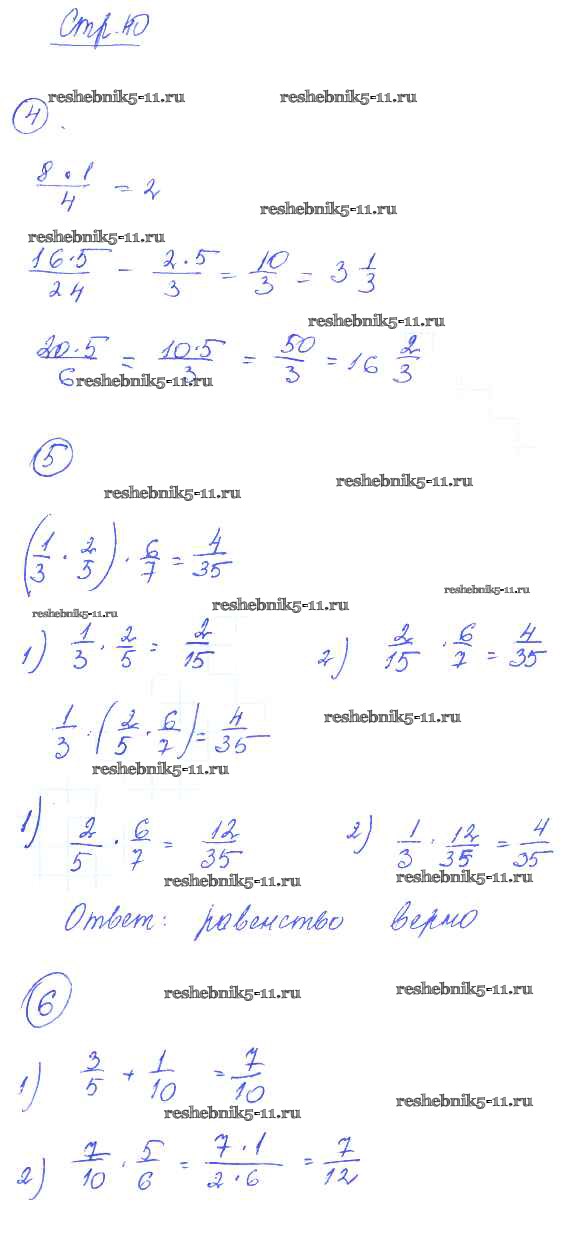 Стр. 40
reshebnik5-11.ru reshebnik5-11.ru
4.
8·1/4 = 2
reshebnik5-11.ru
reshebnik5-11.ru
16·5/24 - 2·5/3 = 10/3 = 3 1/3
reshebnik5-11.ru
20·5/6 = 10·5/3 = 50/3 = 16 2/3
reshebnik5-11.ru
5
reshebnik5-11.ru reshebnik5-11.ru
(1/3 · 2/5) · 6/7 = 4/35
reshebnik5-11.ru reshebnik5-11.ru reshebnik5-11.ru
1) 1/3 · 2/5 = 2/15 2) 2/15 · 6/7 = 4/35
1/3 · (2/5 · 6/7) = 4/35
reshebnik5-11.ru
reshebnik5-11.ru
1) 2/5 · 6/7 = 12/35 2) 1/3 · 12/35 = 4/35
reshebnik5-11.ru reshebnik5-11.ru
Ответ: равенство верно
6
reshebnik5-11.ru reshebnik5-11.ru
1) 3/5 + 1/10 = 7/10
reshebnik5-11.ru reshebnik5-11.ru
2) 7/10 · 5/6 = 7·1/2·6 = 7/12